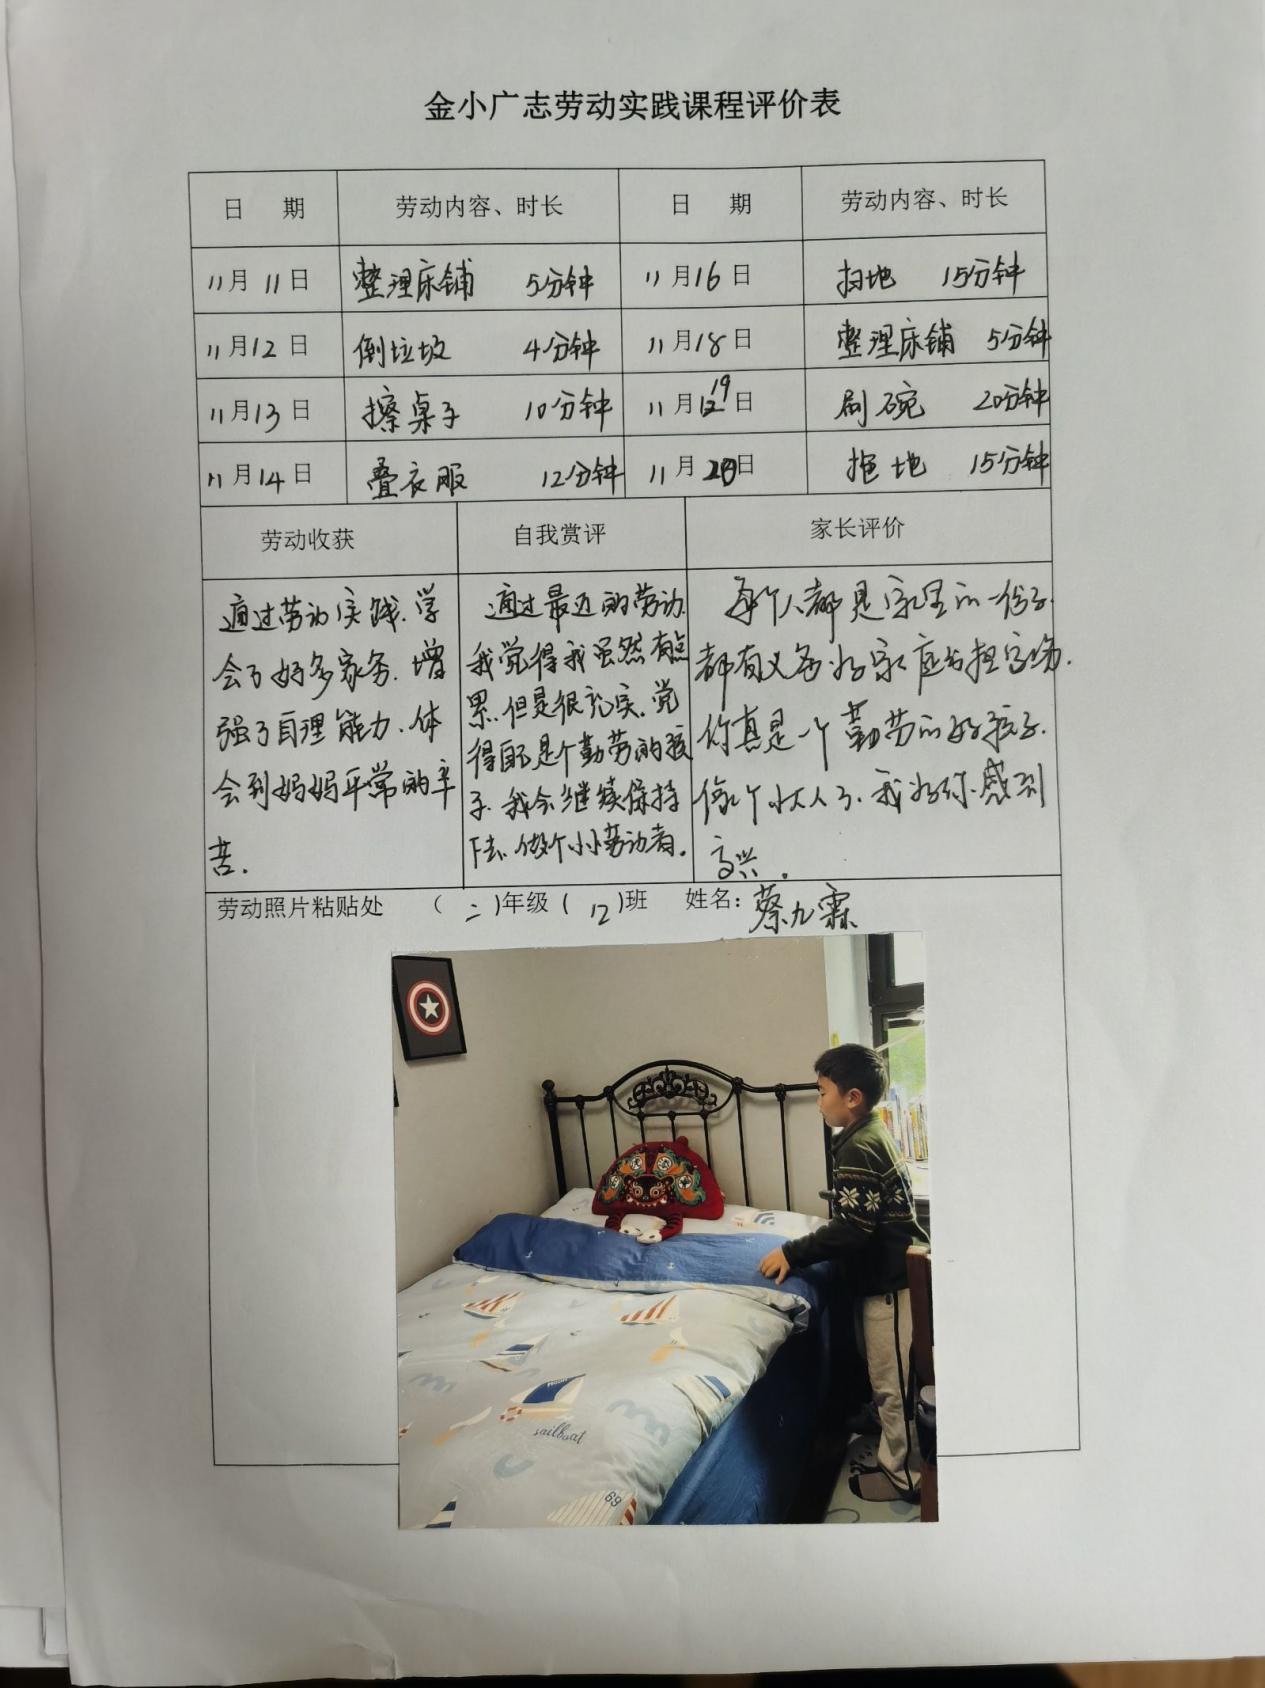 金小广志劳动实践课程评价表
日 期 劳动内容、时长 日 期 劳动内容、时长
11月11日 整理床铺 5分钟 11月16日 扫地 15分钟
11月12日 倒垃圾 4分钟 11月18日 整理床铺 5分钟
11月13日 擦桌子 10分钟 11月19日 刷碗 20分钟
11月14日 叠衣服 12分钟 11月20日 拖地 15分钟
劳动收获 自我赏评 家长评价
通过劳动实践.学
会了好多家务.增
强了自理能力.体
会到妈妈平常的辛
苦.
通过最近的劳动.
我觉得我虽然有点
累.但是很充实.觉
得自己是个勤劳的孩
子.我会继续保持
下去.做个小小劳动者.
每个人都是家里的一份子.
都有义务为家庭去担家务.
你真是一个勤劳的好孩子.
像个小大人了.我为你感到
高兴.
劳动照片粘贴处 (二)年级(12)班 姓名:蔡九霖
sailboat
69